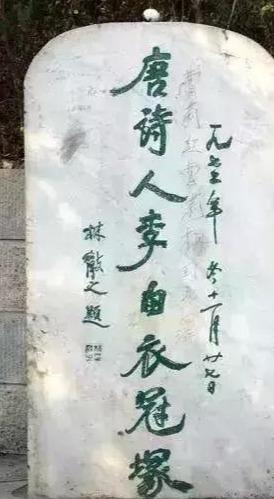 一九七三年 冬 十一月廿七日
唐诗人李白衣冠塚
林散之题